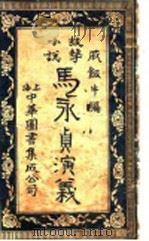 戚飯牛編
技擊
小說
馬永貞演義
上海
中華圖書集成公司